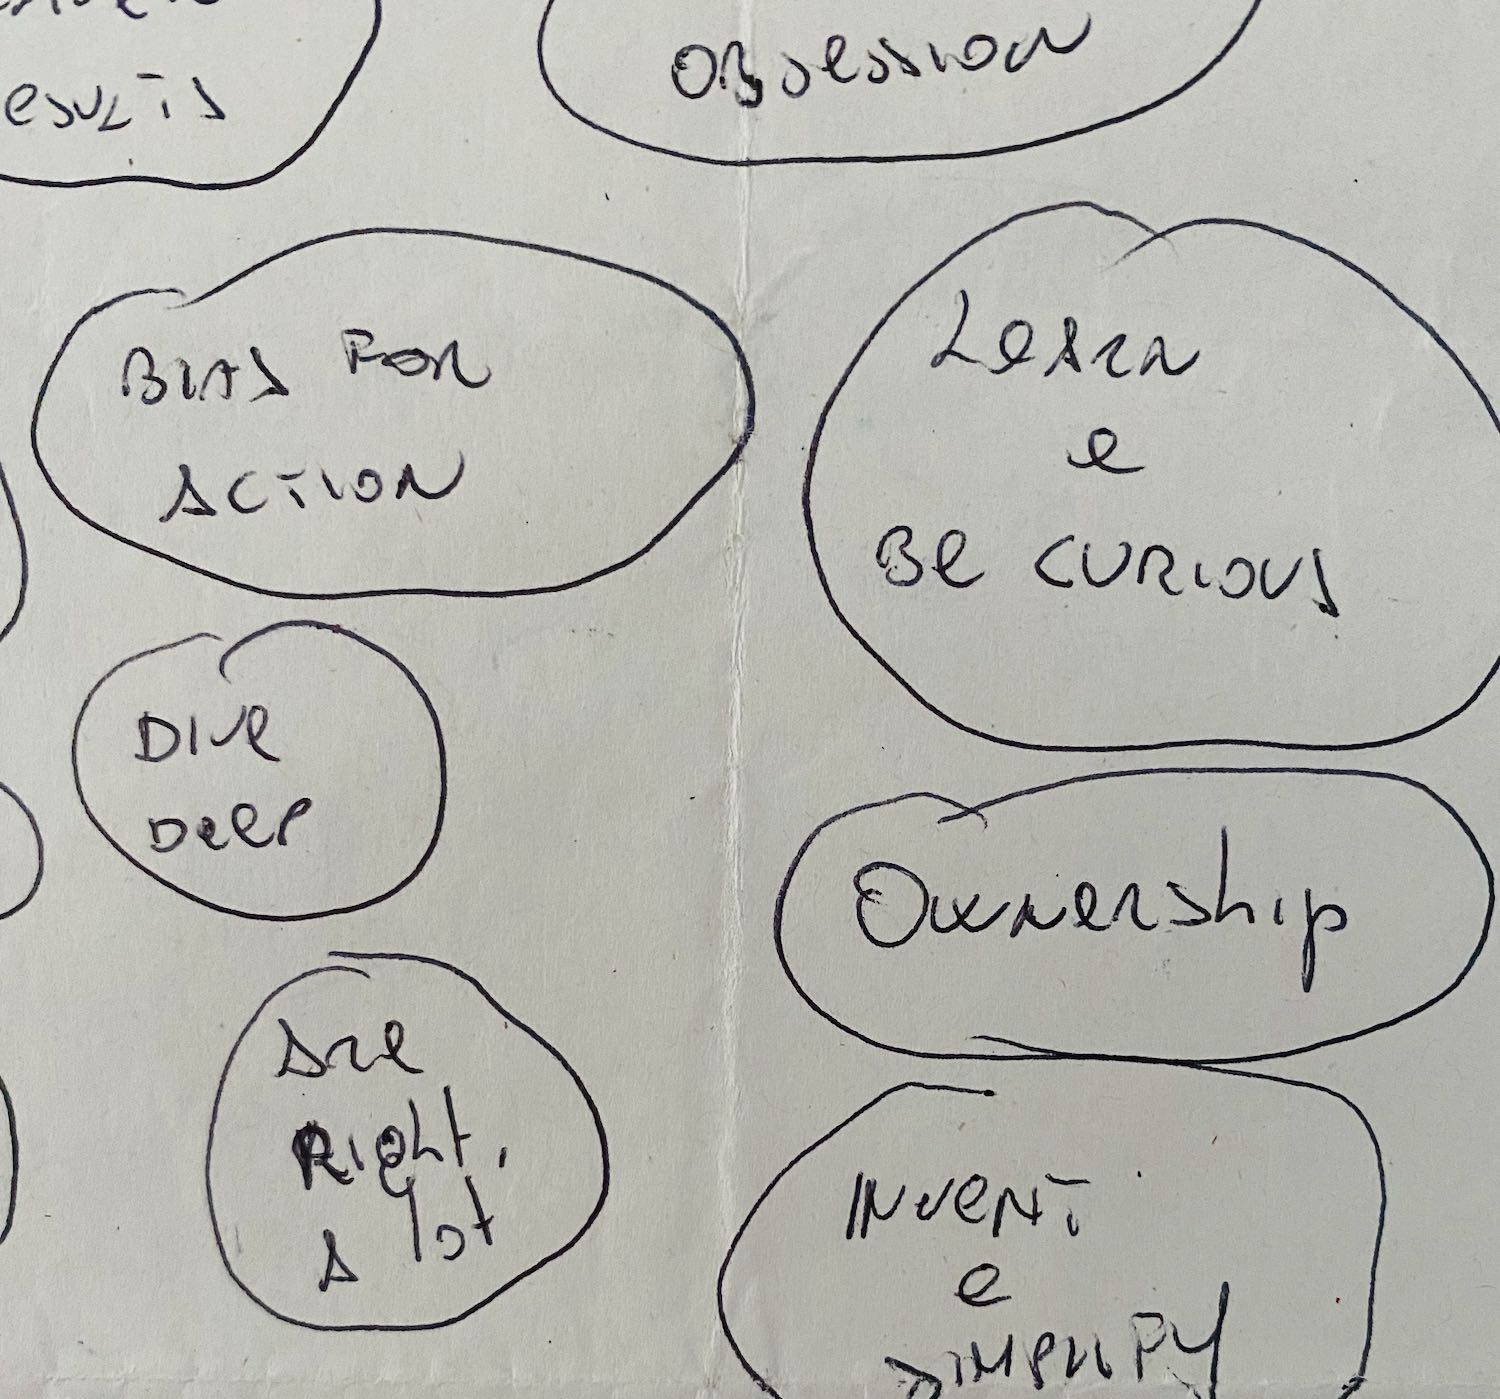 OBSESSION
BIAS FOR
ACTION
Learn
e
Be CURIOUS
DIve
Deep
Ownership
Are
Right,
A lot
INVENT
e
SIMPLIFY